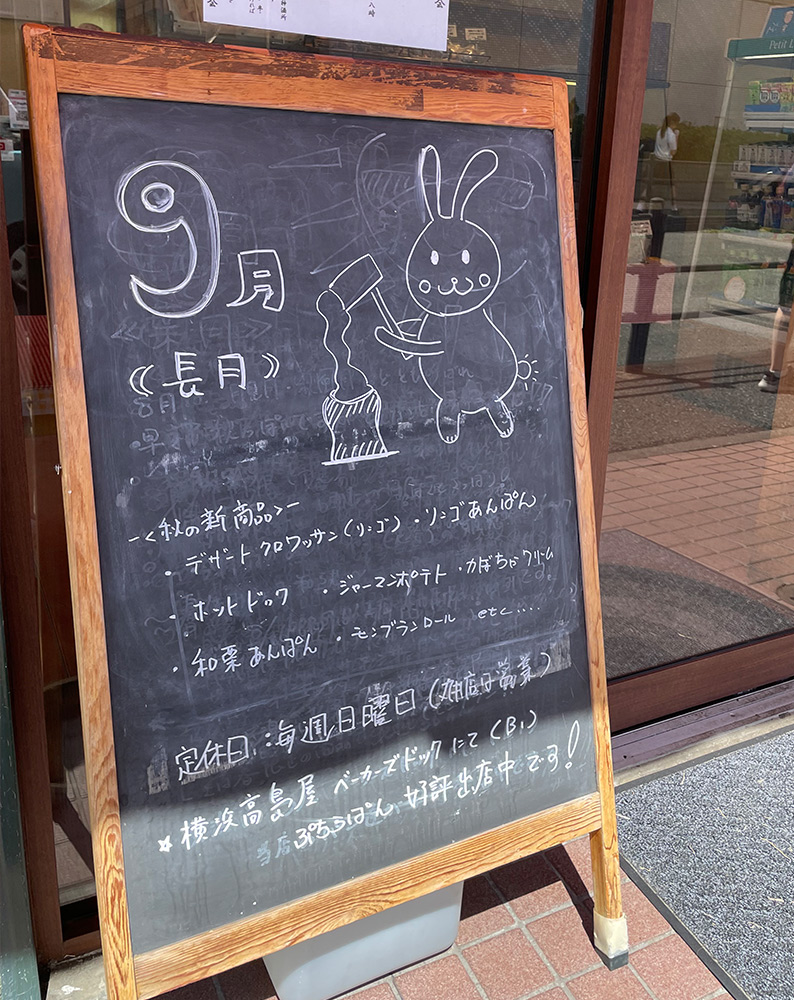 八時
9月
《長月》
-<秋の新商品>-
・デザートクロワッサン(リンゴ)・リンゴあんぱん
・ホットドック ・ジャーマンポテト ・かぼちゃクリーム
・和栗あんぱん ・モンブランロール etc....
定休日:毎週日曜日(
★横浜高島屋 ベーカーズドックにて(B1)
ぷちぷぱん 好評出店中です!
Petit